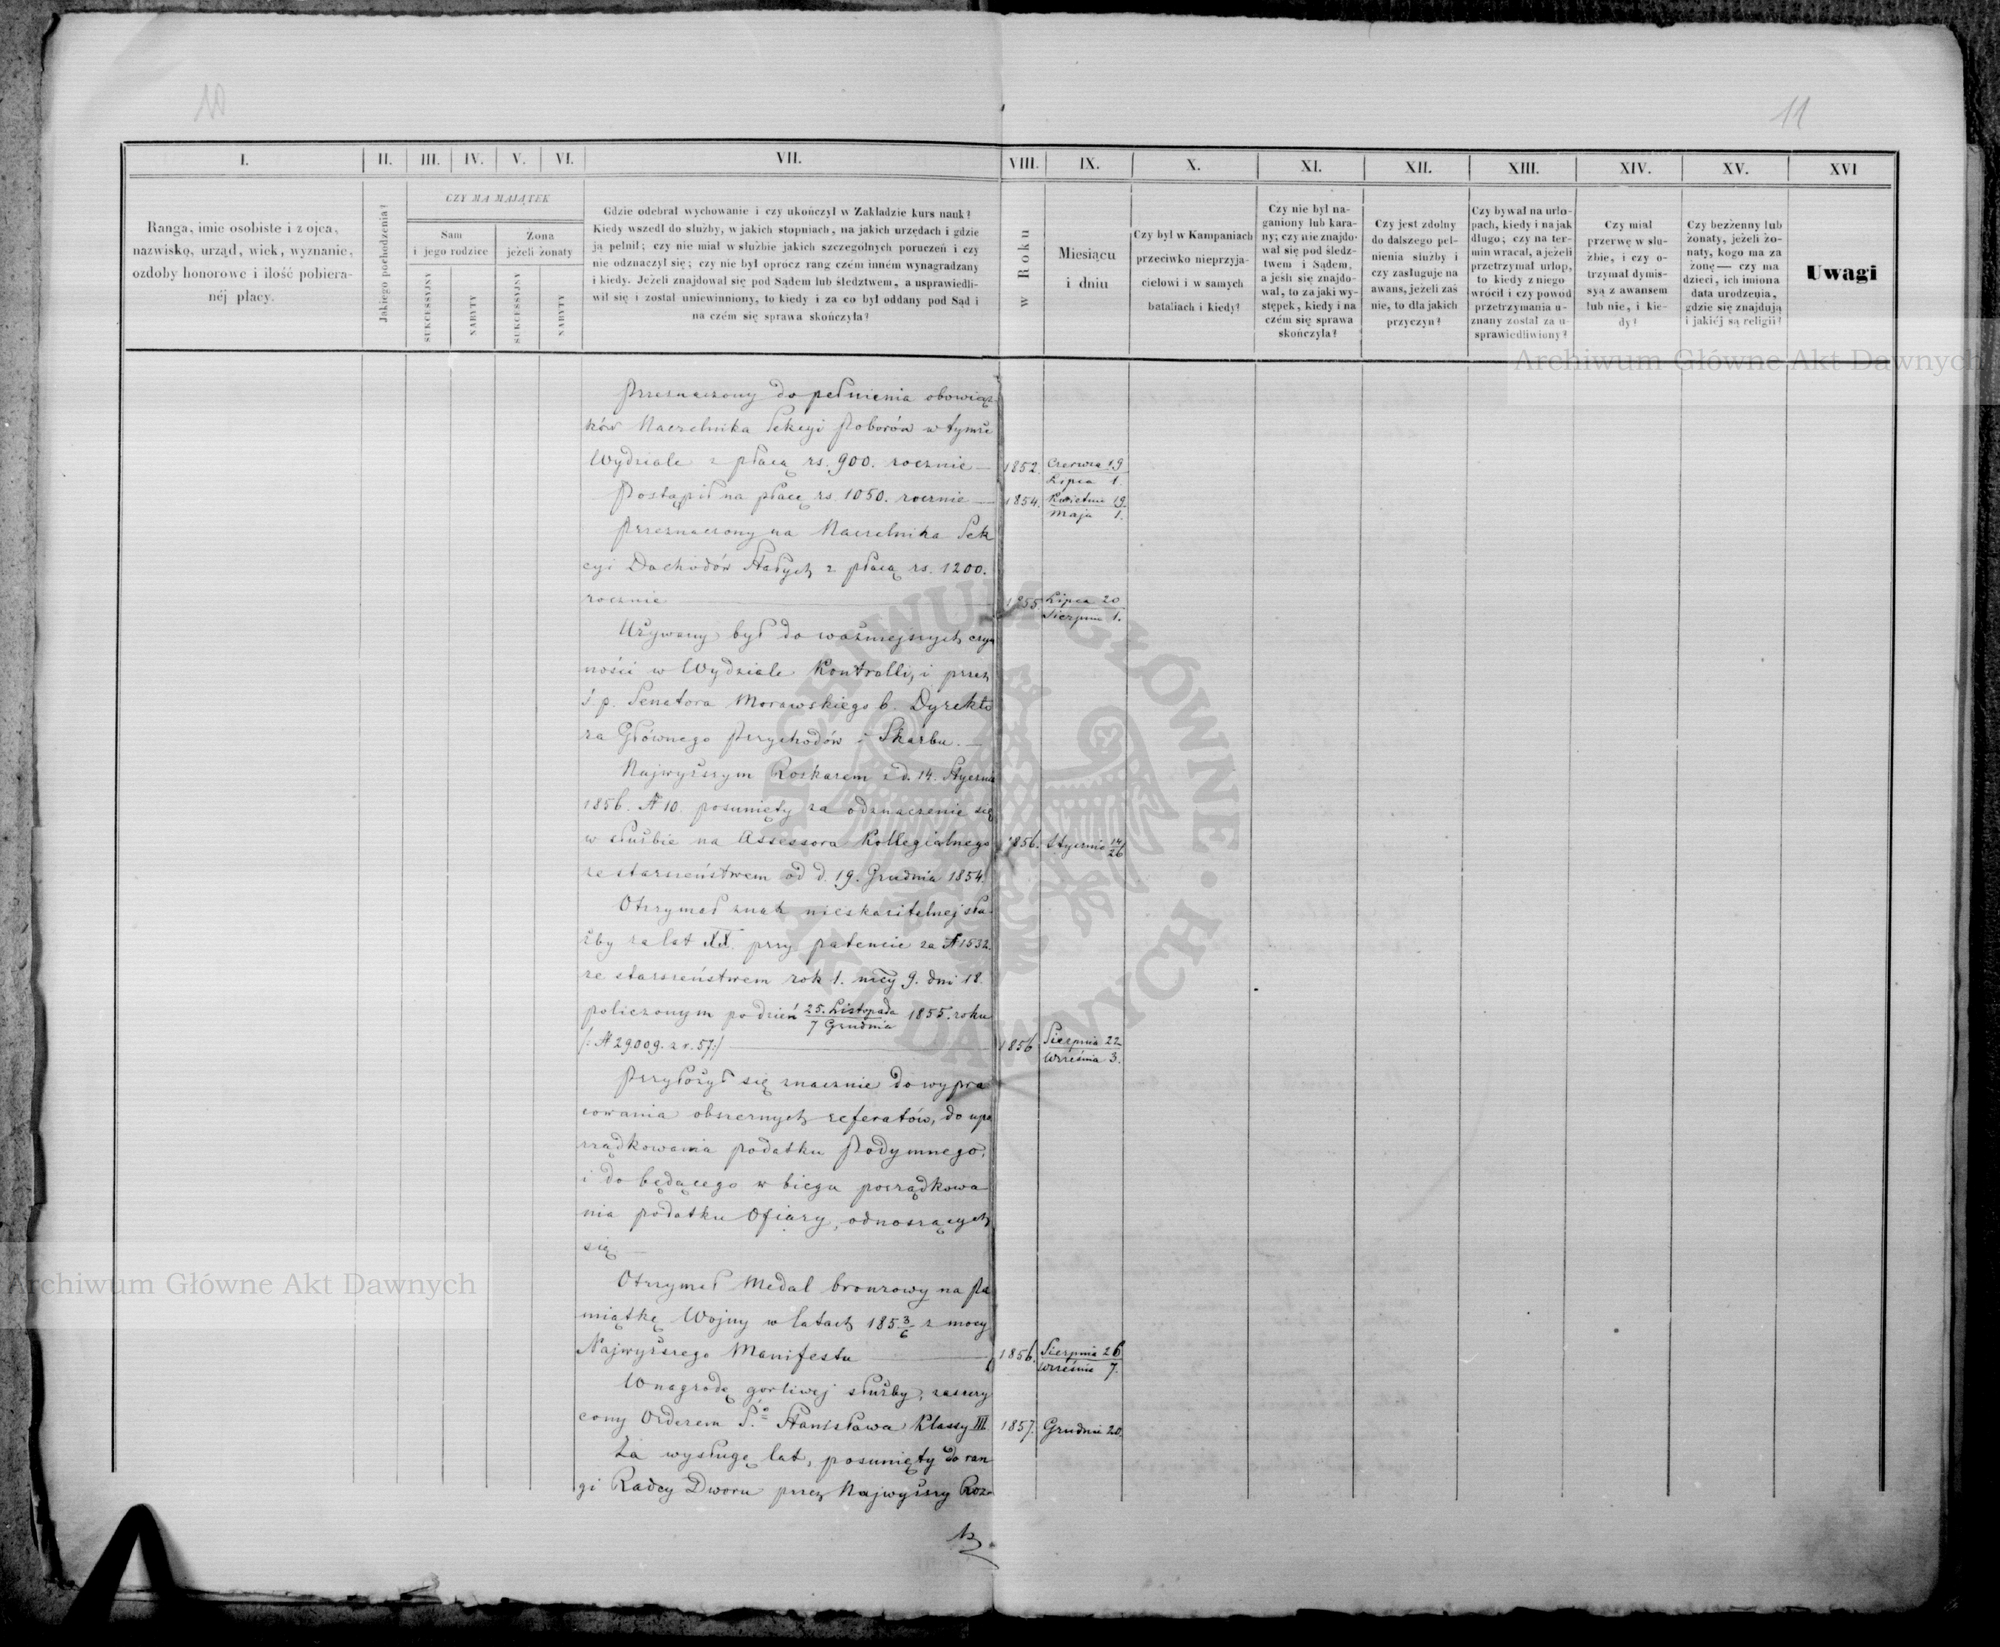 10
11
I.
II.
III.
IV.
V.
VI.
VII.
VIII.
IX.
X.
XI.
XII.
XIII.
XIV.
XV.
XVI
Ranga, imie osobiste i z ojca,
nazwisko, urząd, wiek, wyznanie,
ozdoby honorowe i ilość pobiera-
néj płacy.
Jakiego pochodzenia?
CZY MA MAJĄTEK
Sam
i jego rodzice
Żona
jeżeli żonaty
SUKCESSYJNY
NABYTY
SUKCESSYJNY
NABYTY
Gdzie odebrał wychowanie i czy ukończył w Zakładzie kurs nauk?
Kiedy wszedł do służby, w jakich stopniach, na jakich urzędach i gdzie
ją pełnił; czy nie miał w służbie jakich szczególnych poruczeń i czy
nie odznaczył się; czy nie był oprócz rang czém inném wynagradzany
i kiedy. Jeżeli znajdował się pod Sądem lub śledztwem, a usprawiedli-
wił się i został uniewinniony, to kiedy i za co był oddany pod Sąd i
na czém się sprawa skończyła?
w Roku
Miesiącu
i dniu
Czy był w Kampaniach
przeciwko nieprzyja-
cielowi i w samych
bataliach i kiedy?
Czy nie był na-
ganiony lub kara-
ny; czy nie znajdo-
wał się pod śledz-
twem i Sądem,
a jeśli się znajdo-
wał, to za jaki wy-
stępek, kiedy i na
czém się sprawa
skończyła?
Czy jest zdolny
do dalszego peł-
nienia służby i
czy zasługuje na
awans, jeżeli zaś
nie, to dla jakich
przyczyn?
Czy bywał na urlo-
pach, kiedy i na jak
długo; czy na ter-
min wracał, a jeżeli
przetrzymał urlop,
to kiedy z niego
wrócił i czy powód
przetrzymania u-
znany został za u-
sprawiedliwiony?
Czy miał
przerwę w słu-
żbie, i czy o-
trzymał dymis-
syą z awansem
lub nie, i kie-
dy?
Czy bezżenny lub
żonaty, jeżeli żo-
naty, kogo ma za
żonę — czy ma
dzieci, ich imiona
data urodzenia,
gdzie się znajdują
i jakiéj są religii?
Uwagi
Przeznaczony do pełnienia obowiąz-
ków Naczelnika Sekcyi Poborów w tymże
Wydziale z płacą rs. 900. rocznie — 1852. Czerwca 19 / Lipca 1.
Postąpił na płacę rs. 1050. rocznie — 1854. Kwietnia 19. / Maja 1.
Przeznaczony na Naczelnika Sek
cyi Dochodów Stałych z płacą rs. 1200.
rocznie — 1855. Lipca 20 / Sierpnia 1.
Używany był do ważniejszych czyn
ności w Wydziale Kontrolli, i przez
ś p. Senatora Morawskiego b. Dyrekto
ra Głównego Przychodów i Skarbu. —
Najwyższym Rozkazem z d. 14. Stycznia
1856. N 10. posunięty za odznaczenie się
w służbie na Assessora Kollegialnego 1856. Stycznia 14/26
ze starszeństwem od d. 19. Grudnia 1854.
Otrzymał znak nieskazitelnej słu-
żby za lat XX. przy patencie za N 1532.
ze starszeństwem rok 1. mcy 9. dni 18.
policzonym po dzień 25. Listopada / 7 Grudnia 1855. roku
/: N 29009. z r. 57 :/ — 1856 Sierpnia 22 / Września 3.
Przyłożył się znacznie do wypra
cowania obszernych referatów, do upo
rządkowania podatku Podymnego,
i do będącego w biegu porządkowa
nia podatku Ofiary, odnoszących
się —
Otrzymał Medal bronzowy na Pa
miątkę Wojny w latach 185 3/6 z mocy
Najwyższego Manifestu — 1856. Sierpnia 26 / Września 7.
W nagrodę gorliwej służby, zaszczy
cony Orderem S.go Stanisława Klassy III. 1857. Grudnia 20.
Za wysługę lat, posunięty do ran
gi Radcy Dworu przez Najwyższy Roz-
Archiwum Główne Akt Dawnych
Archiwum Główne Akt Dawnych
ARCHIWUM GŁÓWNE · AKT DAWNYCH ·